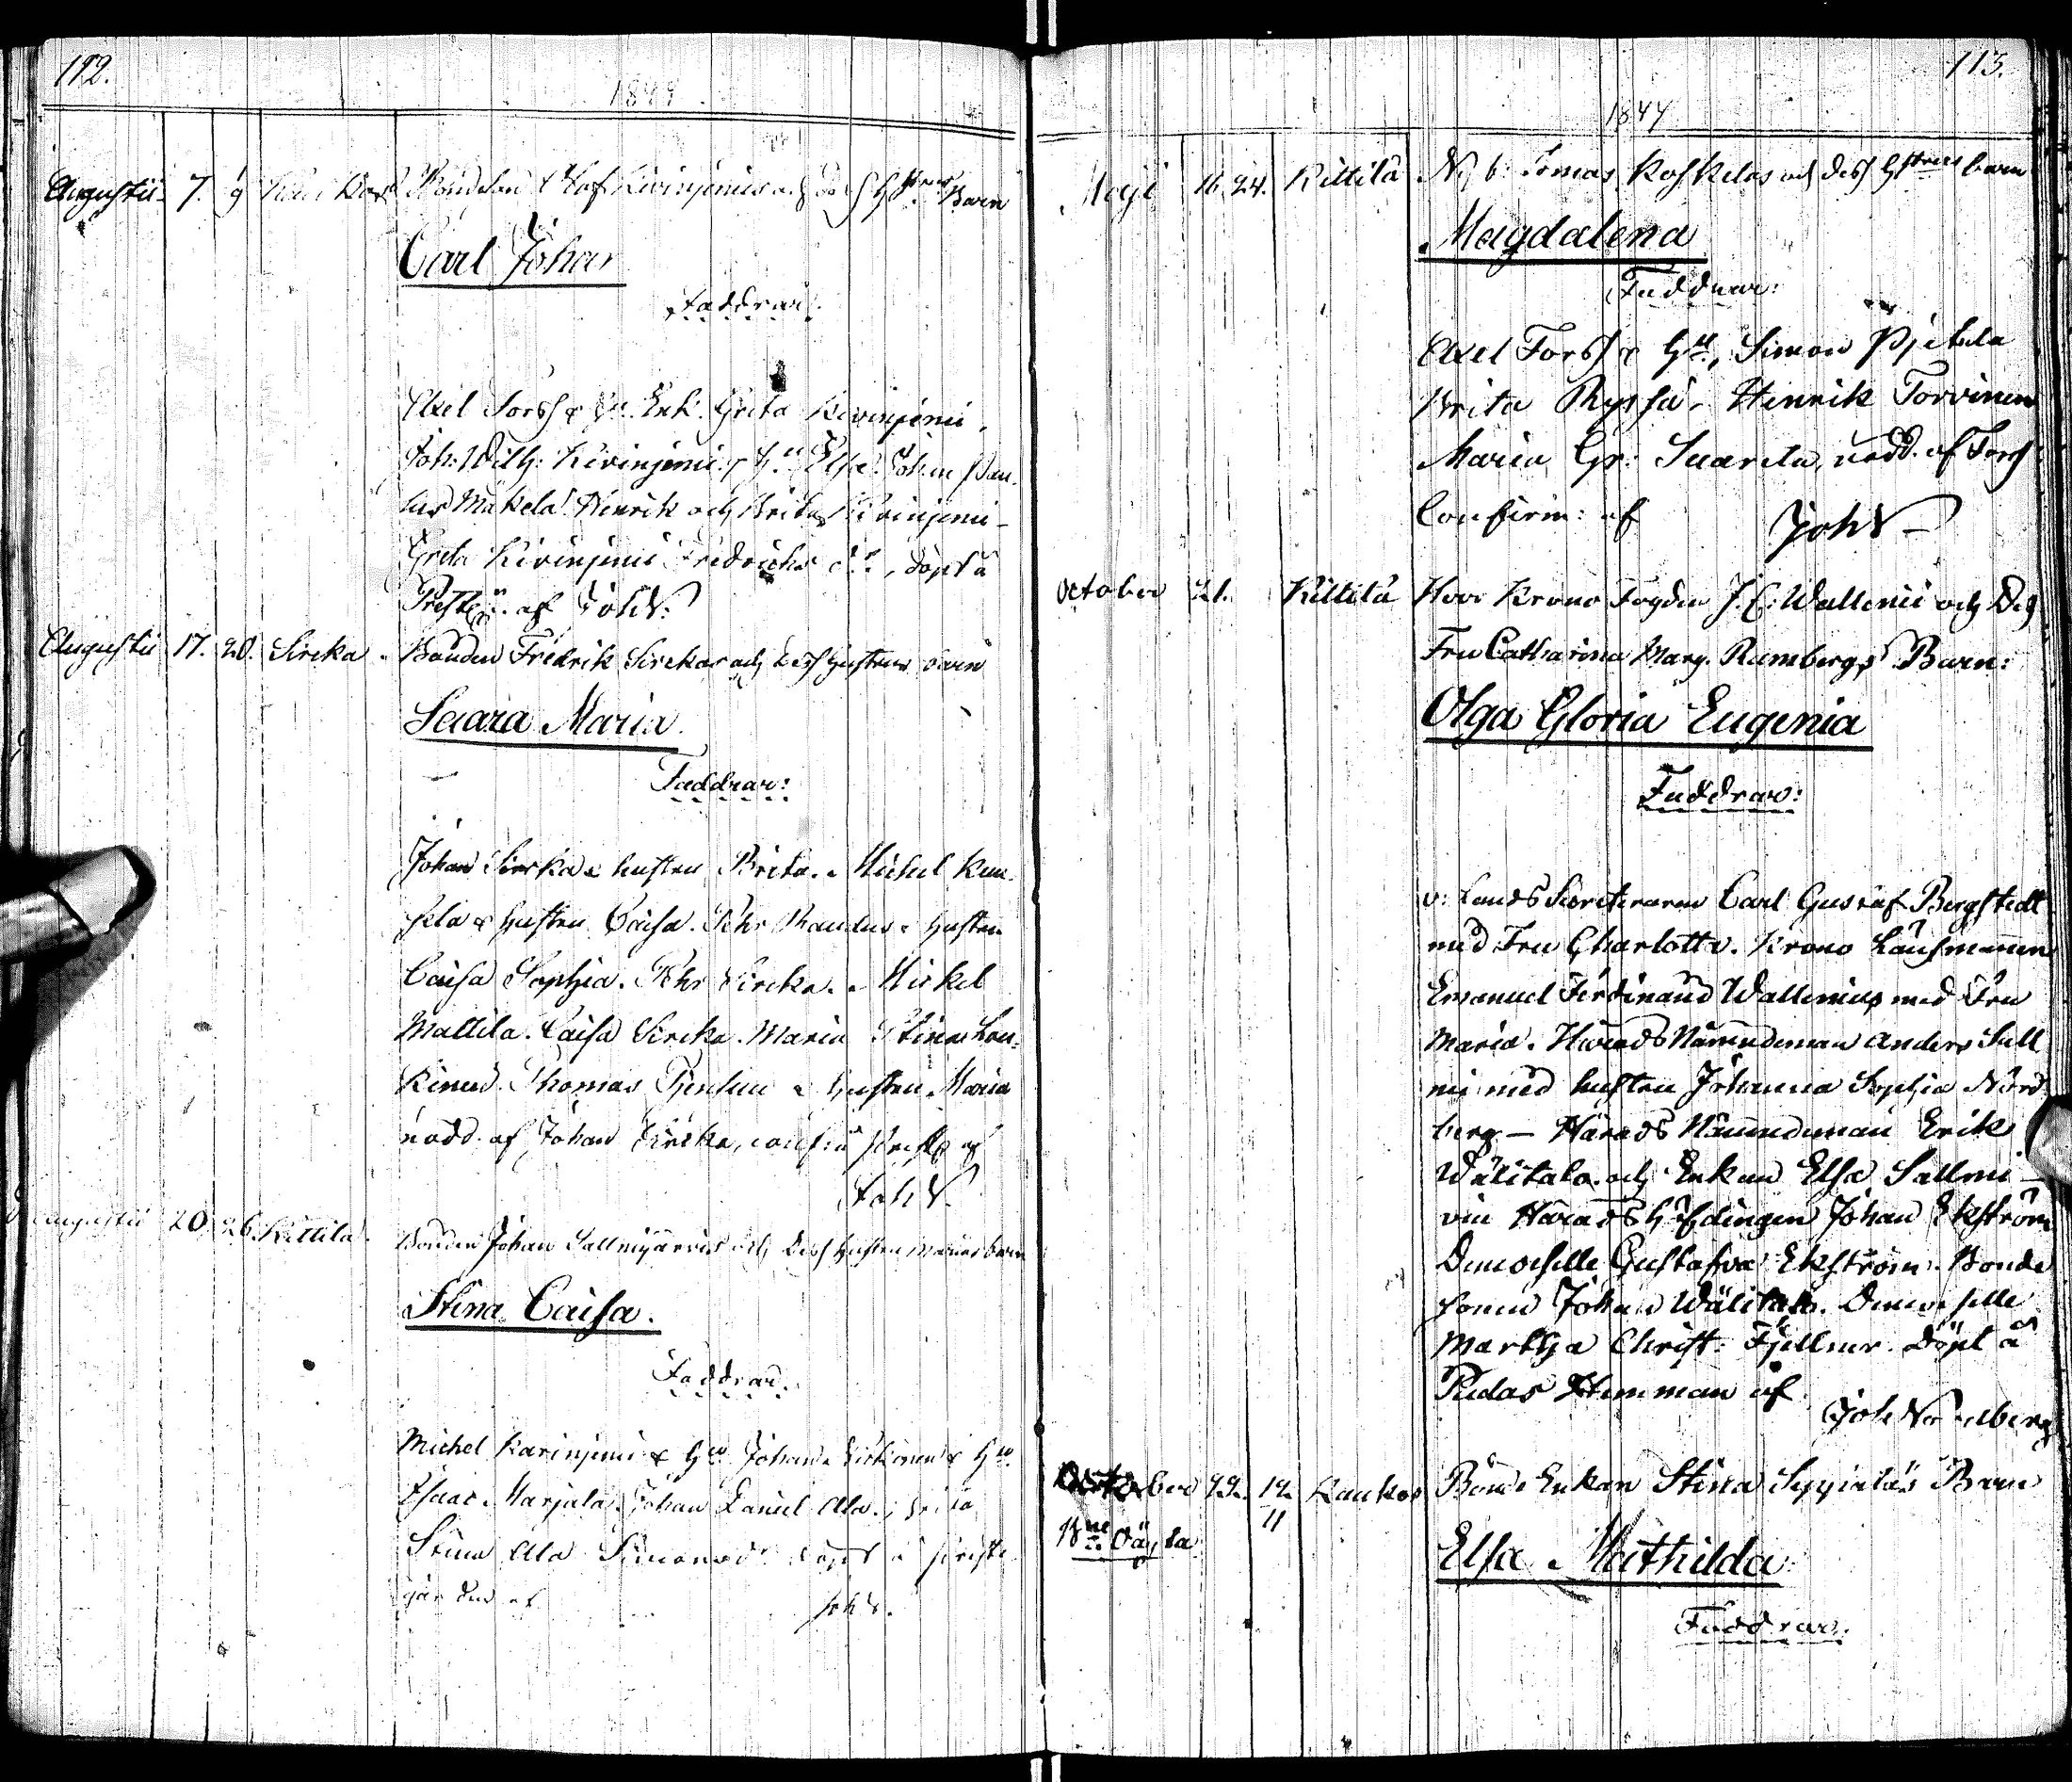 112.
1844
Augustii 7. 9 Kaukos Bondeson Olof Kivinjemis och dess Hstrus Barn
Carl Johan
Faddrar:
Axel Forss & Hu. Enk. Greta Kivinjemi,
Joh: Wilh: Kivinjemi & Hu Elsa. Johan Pau-
lus Mäkelä. Henrik och Brita Kivinjemi
Greta Kivinjemi Fredriks dr, döpt å
Prestg. af Joh N:
Augustii 17. 20. Sirka Bonden Fredrik Sirkas och dess hustrus barn
Saara Maria.
Faddrar:
Johan Sirka & hustru Brita. Michel
& hustru Caisa. Pehr & hustru
Caisa Sophia. Pehr Sirka. Mickel
Mattila. Caisa Sirka. Maria Stina Lou-
kinen. Thomas & hustru Maria
nödd. af Johan Sirka, confir. i Prestg. af
Joh N.
Augustii 20. 26. Kittilä. Bonden Johan Sallmijärvis och dess hustru Marias barn
Stina Caisa.
Faddrar.
Michel Karinjemi & Hu Johan & Hu
Isaac Marjala. Johan Daniel Ala. Brita
Stina Ala Simonsdr döpt å Preste-
gården af Joh N.
113.
1844
Maji 16. 24. Kittilä N. b: Tomas Koskelas och dess Hstrus barn
Magdalena
Faddrar:
Axel Forss & Hu, Simon Pjetila
Brita Ryssä. Henrik Torvinen
Maria Gr: Suarela, nödd. af Forss
Confirm: af Joh N
October 21. Kittilä Herr Krono Fogden J. C. Wallenii och Dess
Fru Catharina Marg. Rumbergs Barn:
Olga Gloria Eugenia
Faddrar:
v: Lands Secreteraren Carl Gustaf Bergstedt
med Fru Charlotta. Krono Länsmannen
Emanuel Ferdinand Wallenius med Fru
Maria. Härads Nämndeman Anders Sall
mi med hustru Johanna Sophia Nord
berg — Härads Nämndeman Erik
Wälitalo och Enkan Elsa Sallmi —
vin Härads Höfdingen Johan Ekström
Demoiselle Gustafva Ekström. Bonde
sonen Johan Wälitalo. Demoiselle
Martha Christ: Fjellner. Döpt å
Pudas Hemman af
Joh Nordberg
October 22. 12/11 Kaukos Bonde Enkan Stina Barn
18ne Oägta
Elsa Mathilda
Faddrar: